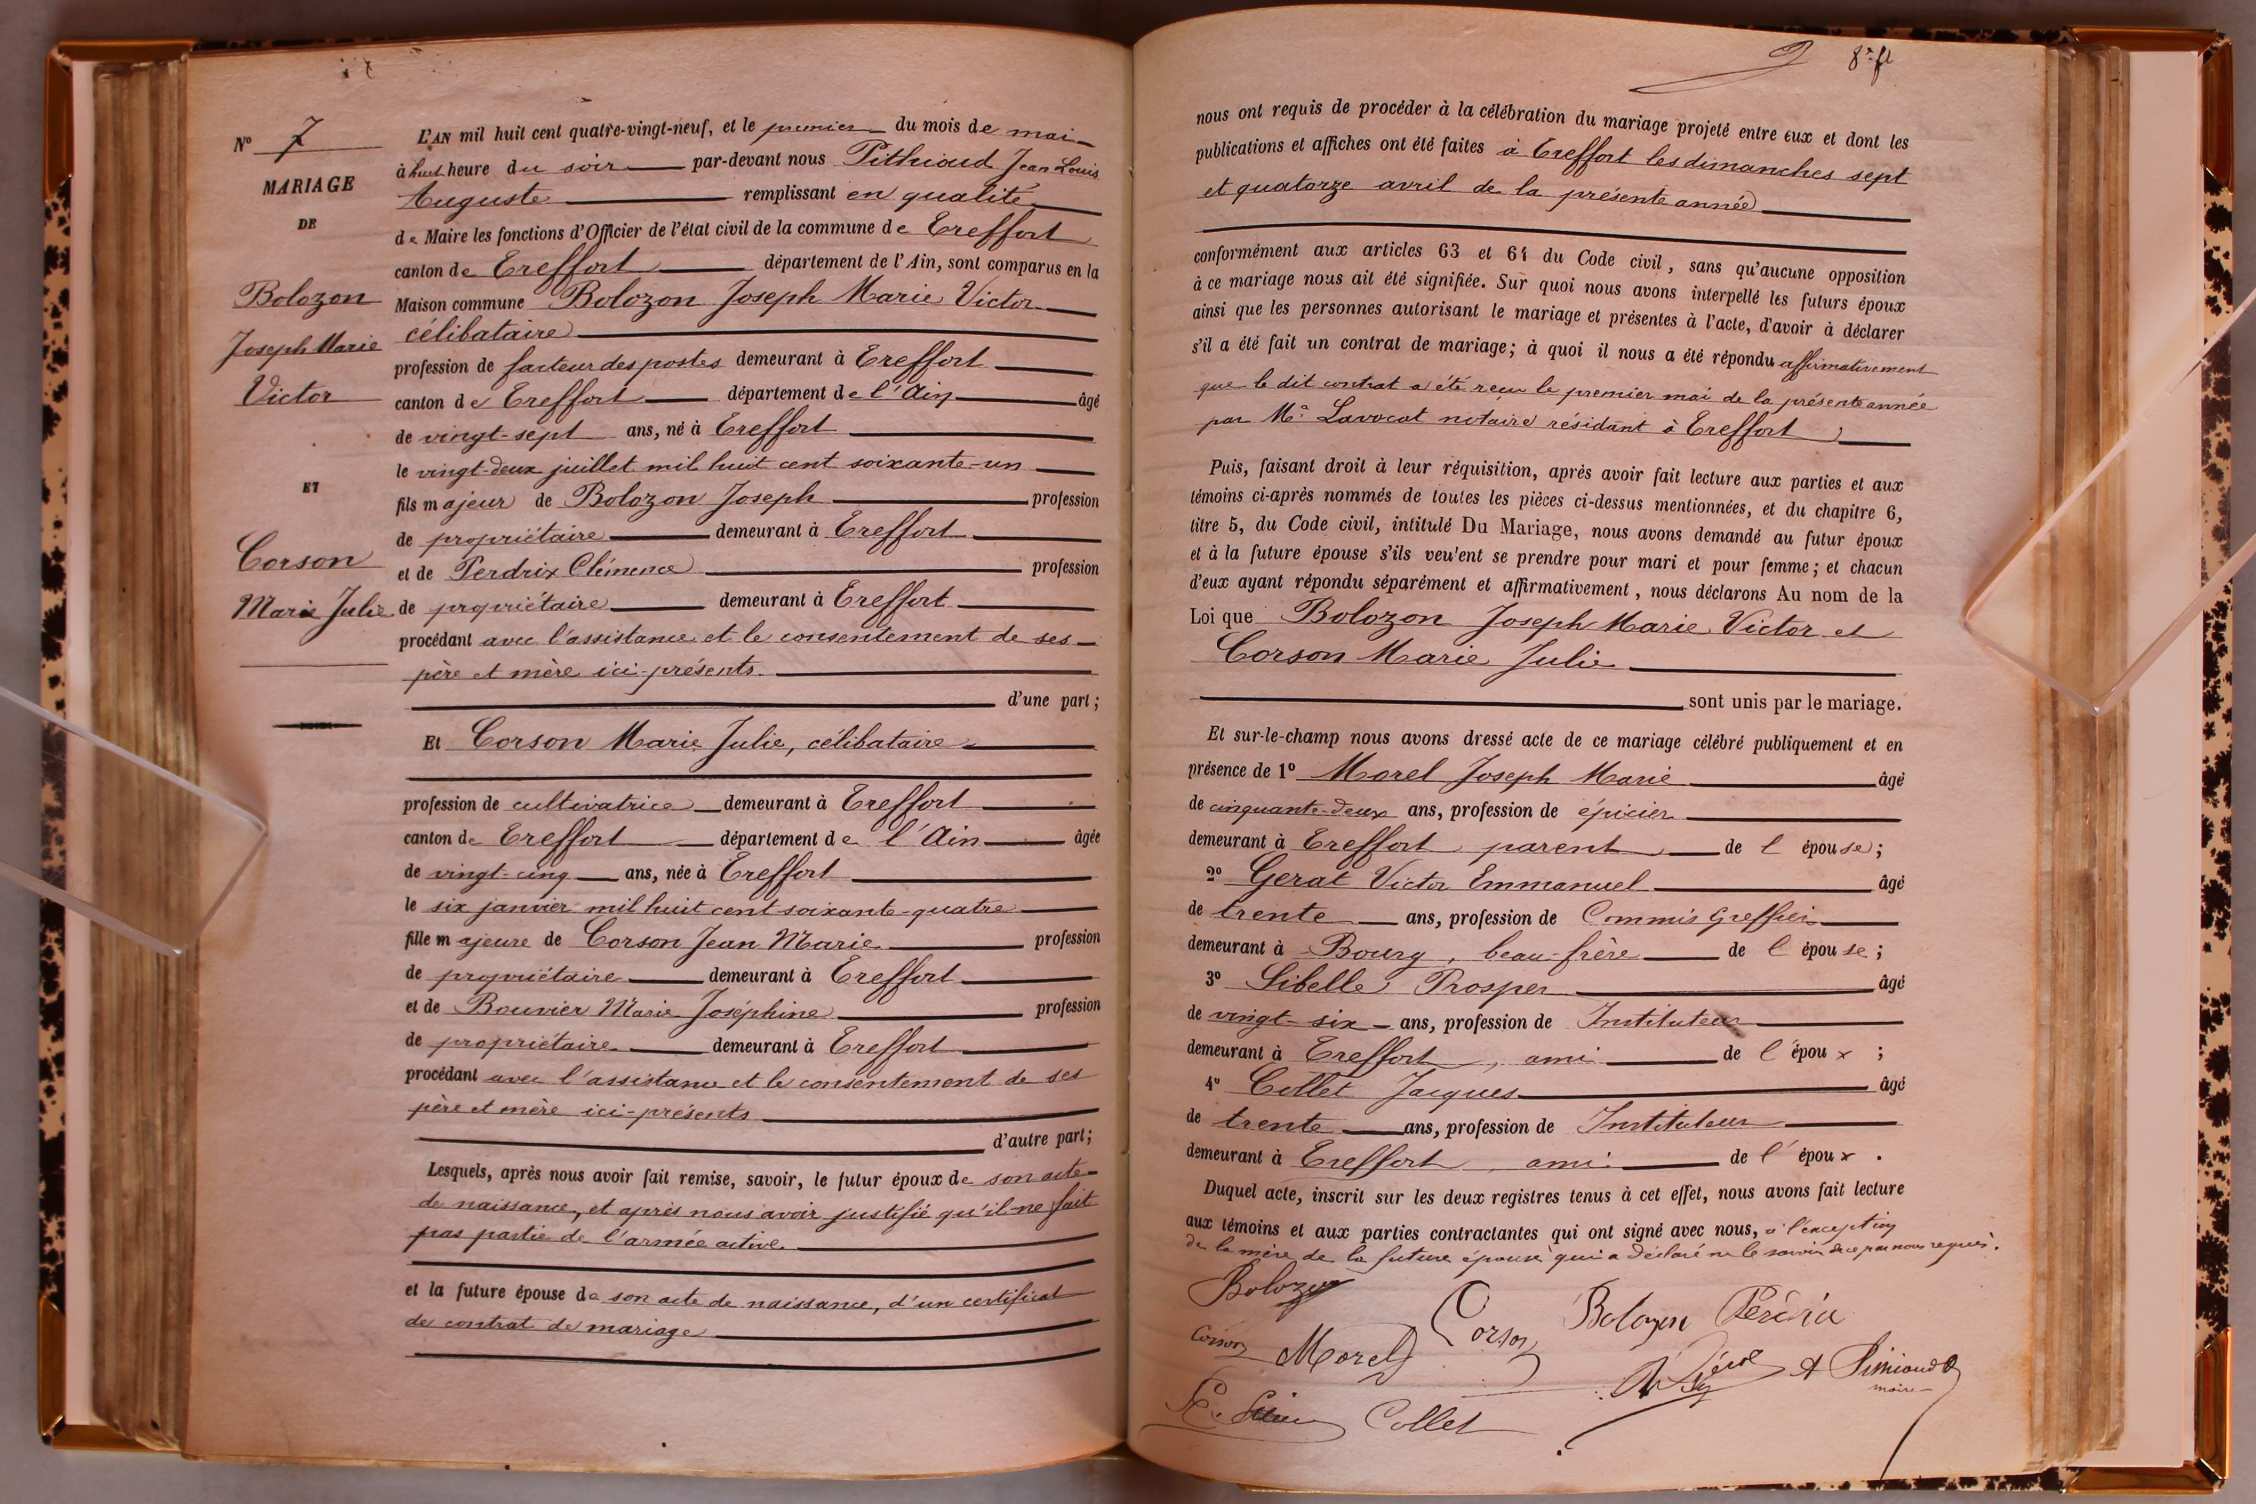 N° 7
MARIAGE
DE
Bolozon
Joseph Marie
Victor
ET
Corson
Marie Julie
L'AN mil huit cent quatre-vingt-neuf, et le premier du mois de mai
à huit heure du soir par-devant nous Pithioud Jean Louis
Auguste remplissant en qualité
de Maire les fonctions d'Officier de l'état civil de la commune de Treffort
canton de Treffort département de l'Ain, sont comparus en la
Maison commune Bolozon Joseph Marie Victor
célibataire
profession de facteur des postes demeurant à Treffort
canton de Treffort département de l'Ain âgé
de vingt-sept ans, né à Treffort
le vingt-deux juillet mil huit cent soixante-un
fils majeur de Bolozon Joseph profession
de propriétaire demeurant à Treffort
et de Perdrix Clémence profession
de propriétaire demeurant à Treffort
procédant avec l'assistance et le consentement de ses
père et mère ici-présents.
d'une part;
Et Corson Marie Julie, célibataire
profession de cultivatrice demeurant à Treffort
canton de Treffort département de l'Ain âgée
de vingt-cinq ans, née à Treffort
le six janvier mil huit cent soixante-quatre
fille majeure de Corson Jean Marie profession
de propriétaire demeurant à Treffort
et de Bouvier Marie Joséphine profession
de propriétaire demeurant à Treffort
procédant avec l'assistance et le consentement de ses
père et mère ici-présents
d'autre part;
Lesquels, après nous avoir fait remise, savoir, le futur époux de son acte
de naissance, et après nous avoir justifié qu'il ne fait
pas partie de l'armée active.
et la future épouse de son acte de naissance, d'un certificat
de contrat de mariage
8e ft
nous ont requis de procéder à la célébration du mariage projeté entre eux et dont les
publications et affiches ont été faites à Treffort les dimanches sept
et quatorze avril de la présente année
conformément aux articles 63 et 64 du Code civil, sans qu'aucune opposition
à ce mariage nous ait été signifiée. Sur quoi nous avons interpellé les futurs époux
ainsi que les personnes autorisant le mariage et présentes à l'acte, d'avoir à déclarer
s'il a été fait un contrat de mariage; à quoi il nous a été répondu affirmativement
que le dit contrat a été reçu le premier mai de la présente année
par Me Lavocat notaire résidant à Treffort
Puis, faisant droit à leur réquisition, après avoir fait lecture aux parties et aux
témoins ci-après nommés de toutes les pièces ci-dessus mentionnées, et du chapitre 6,
titre 5, du Code civil, intitulé Du Mariage, nous avons demandé au futur époux
et à la future épouse s'ils veulent se prendre pour mari et pour femme; et chacun
d'eux ayant répondu séparément et affirmativement, nous déclarons Au nom de la
Loi que Bolozon Joseph Marie Victor et
Corson Marie Julie
sont unis par le mariage.
Et sur-le-champ nous avons dressé acte de ce mariage célébré publiquement et en
présence de 1° Morel Joseph Marie âgé
de cinquante-deux ans, profession de épicier
demeurant à Treffort, parent de l épouse;
2° Gerat Victor Emmanuel âgé
de trente ans, profession de Commis Greffier
demeurant à Bourg, beau-frère de l épouse;
3° Sibelle Prosper âgé
de vingt-six ans, profession de Instituteur
demeurant à Treffort, ami de l'époux;
4° Collet Jacques âgé
de trente ans, profession de Instituteur
demeurant à Treffort, ami de l'époux.
Duquel acte, inscrit sur les deux registres tenus à cet effet, nous avons fait lecture
aux témoins et aux parties contractantes qui ont signé avec nous, à l'exception
de la mère de la future épouse qui a déclaré ne le savoir de ce par nous requis.
Bolozon
Corson
Bolozon Perdrix
Corson
Morel
A Pithioud
maire
Collet